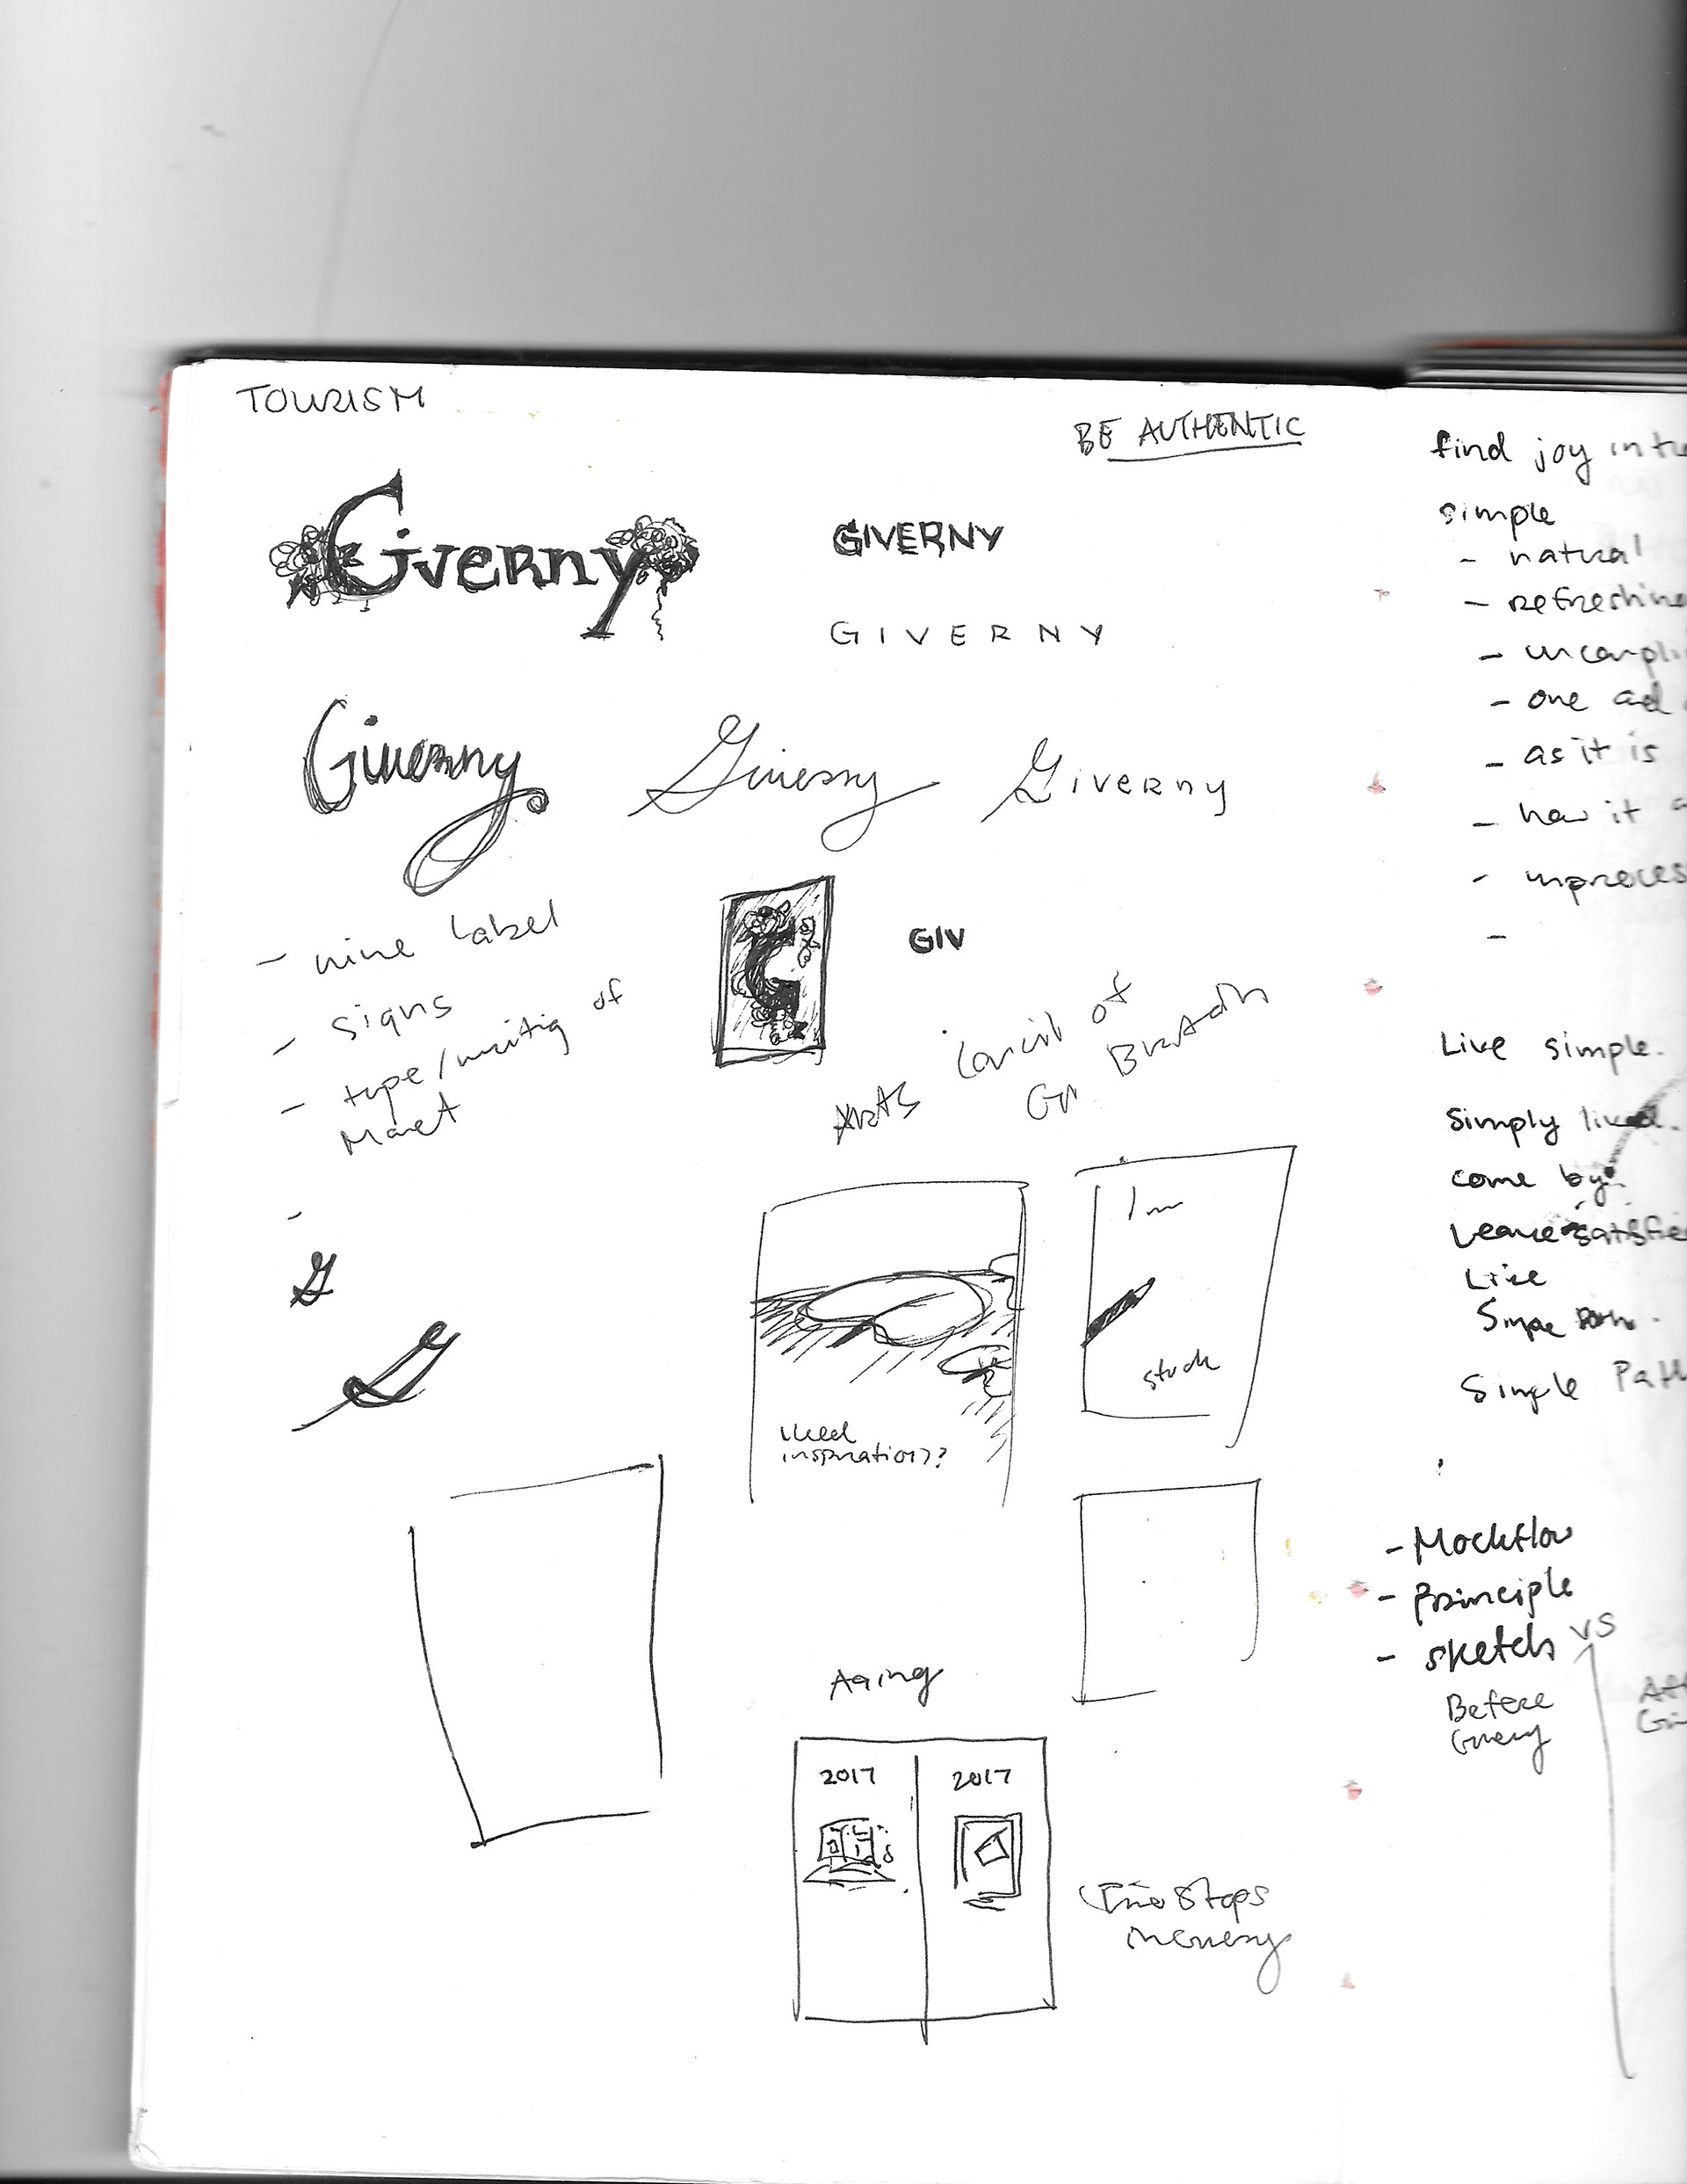 TOURISM
BE AUTHENTIC
Giverny
GIVERNY
GIVERNY
Giverny
Giverny
Giverny
- wine label
G
GIV
- signs
- type/writing of
Monet
Arts Council of
Gr
G
I
stuck
Need
inspiration?
Aging
2017
2017
Time Stops
memory
find joy in
simple
- natural
- refreshing
-
- one ad
- as it is
- how it
-
-
Live simple.
Simply lived.
come by.
Leave satisfied
Live
Simple
Simple Path
- Mockflow
- Principle
- sketch vs
Before